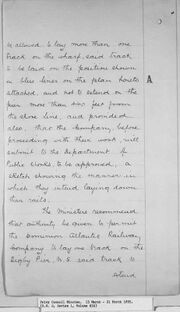 be allowed to lay more than one
track on the wharf, said track
to be laid on the position shown
in blue lines on the plan hereto
attached, and not to extend on the
pier more than 400 feet from
the shore line, and provided
also, that the Company, before
proceeding with their work, will
submit to the Department of
Public Works, to be approved, a
sketch showing the manner in
which they intend laying down
their rails.
The Ministers recommend
that authority be given to permit
the Dominion Atlantic Railway
Company to lay one track on the
Digby Pier, N.S. said track to
A
Privy Council Minutes, 13 March - 21 March 1895.